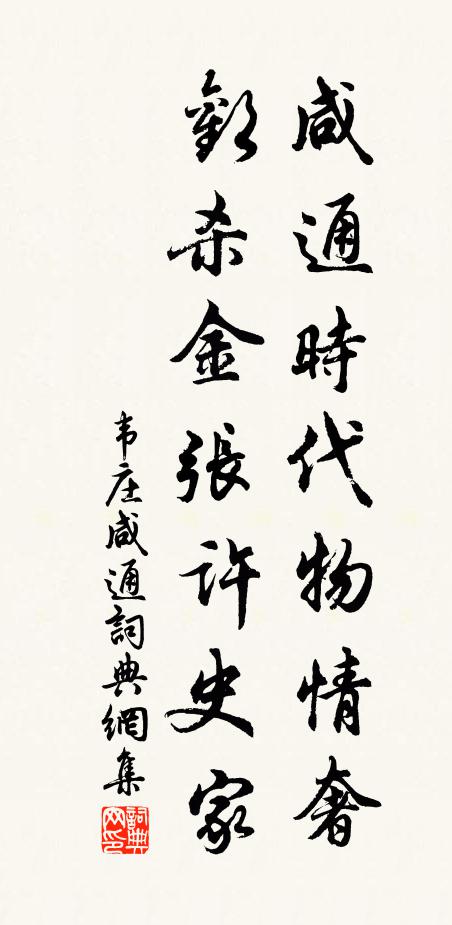 咸通時代物情奢
歡杀金張許史家
韦庄咸通詞典網集
詞典網印